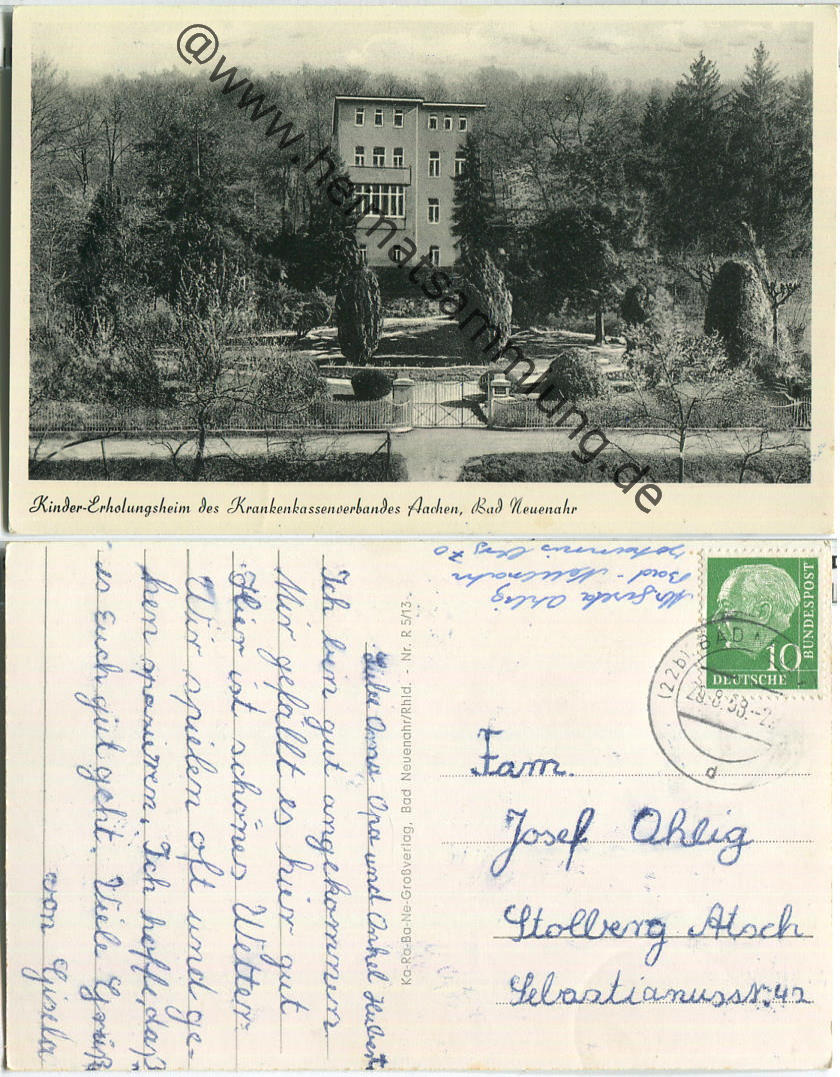 @www.heimatsammlung.de
Kinder-Erholungsheim des Krankenkassenverbandes Aachen, Bad Neuenahr
Liebe Oma Opa und Onkel Hubert
Ich bin gut angekommen
Mir gefällt es hier gut
Hier ist schönes Wetter.
Wir spielen oft und ge-
hen spazieren. Ich hoffe, daß
es Euch gut geht. Viele Grüß
von Gisela
Ka-Ra-Ba-Ne-Großverlag, Bad Neuenahr/Rhld. - Nr. R 5/13
Ohlig
Bad-Neuenahr
70
DEUTSCHE
BUNDESPOST
10
(22b) BAD
28.8.58.-2
d
Fam.
Josef Ohlig
Stolberg Atsch
Sebastianusstr. 42